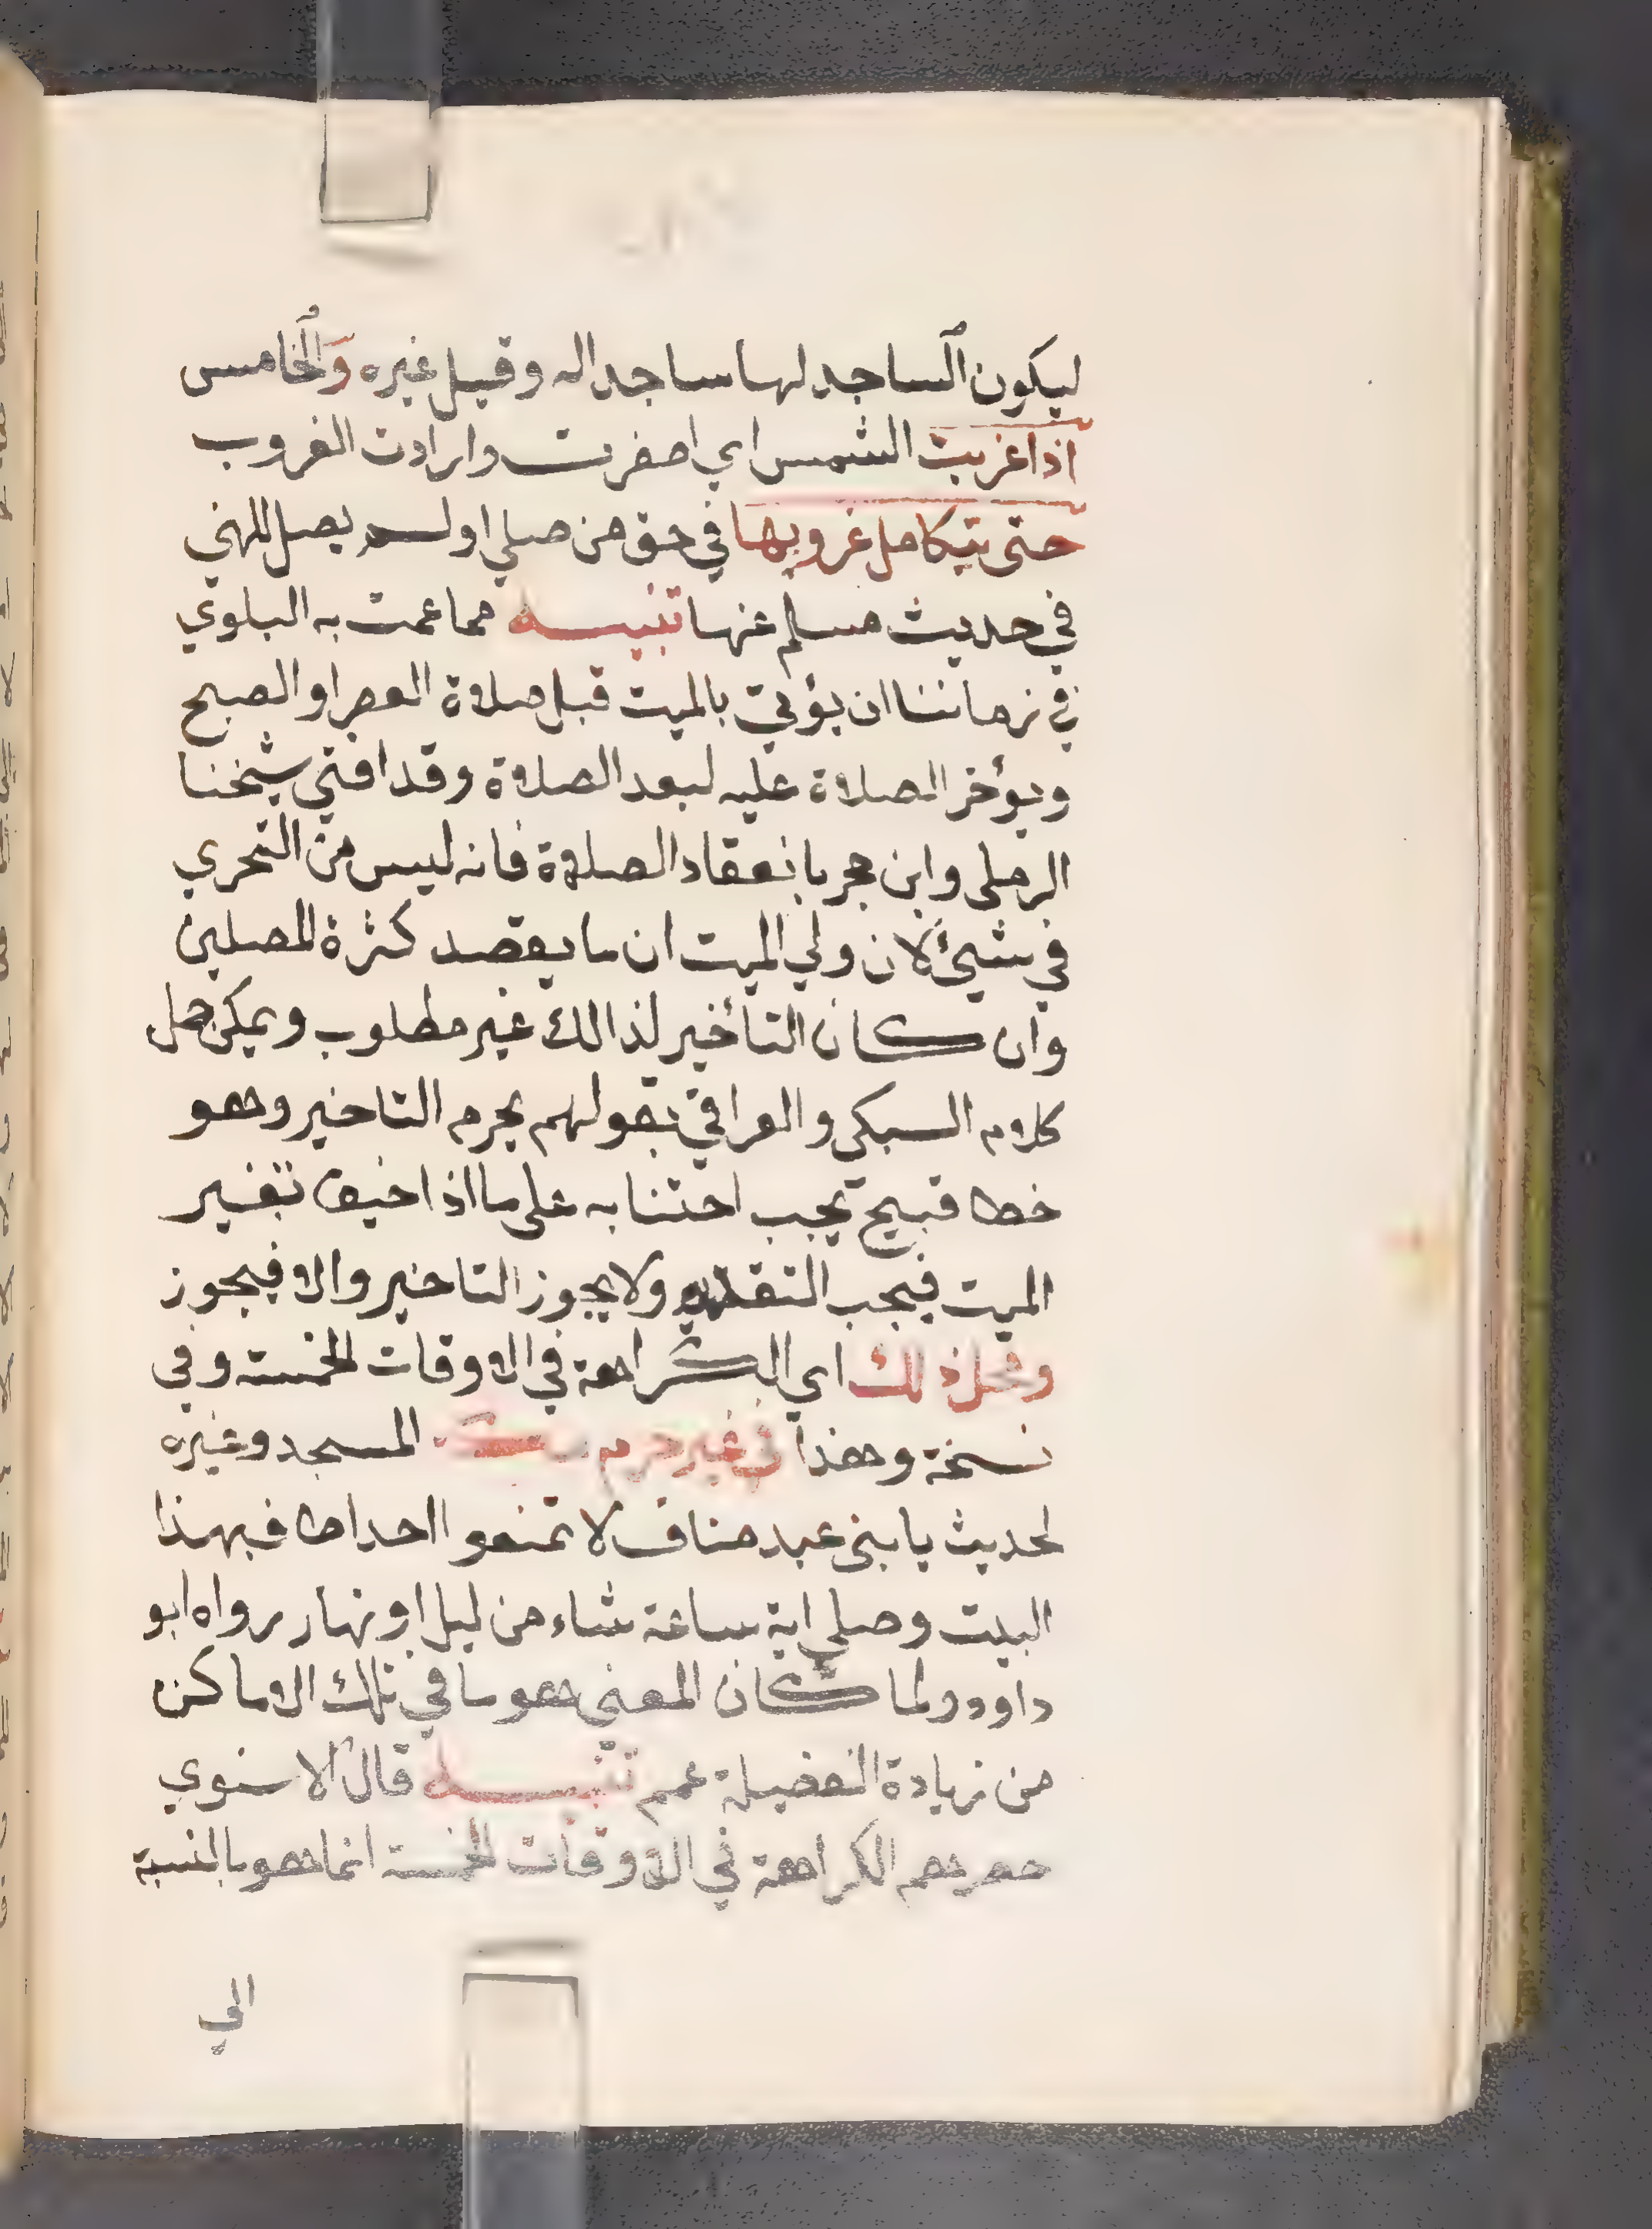 ليكون الساجد لها ساجدا له وقيل غيره والخامس
اذا غربت الشمس اي اصفرت وارادت الغروب
حتى يتكامل غروبها في حق من صلي او لم يصل للنهي
في حديث مسلم عنها تنبيه مما عمت به البلوي
في زماننا ان يؤتي بالميت قبل صلاة العصر او الصبح
ويؤخر الصلاة عليه لبعد الصلاة وقد افتي شيخنا
الرملى وابن حجر بانعقاد الصلاة فانه ليس من التحري
في شيئ لان ولي الميت ان ما يقصد كثرة المصلين
وان كان التأخير لذالك غير مطلوب ويمكن حمل
كلام السبكي والعراقي بقولهم يحرم التاخير وهو
خطا قبيح يجب اجتنابه على ما اذا خيف تغير
الميت فيجب التقديم ولا يجوز التاخير والا فيجوز
ومحل ذلك اي الكراهة في الاوقات الخمسة وفي
نسخة وهذا في غير حرم مكة المسجد وغيره
لحديث يا بنى عبد مناف لا تمنعوا احدا طاف بهذا
البيت وصلي اية ساعة شاء من ليل او نهار رواه ابو
داود ولما كان المعني هو ما في تلك الاماكن
من زيادة الفضيلة عمم تنبيه قال الاسنوي
حصرهم الكراهة في الاوقات الخمسة انما هو بالنسبة
الي